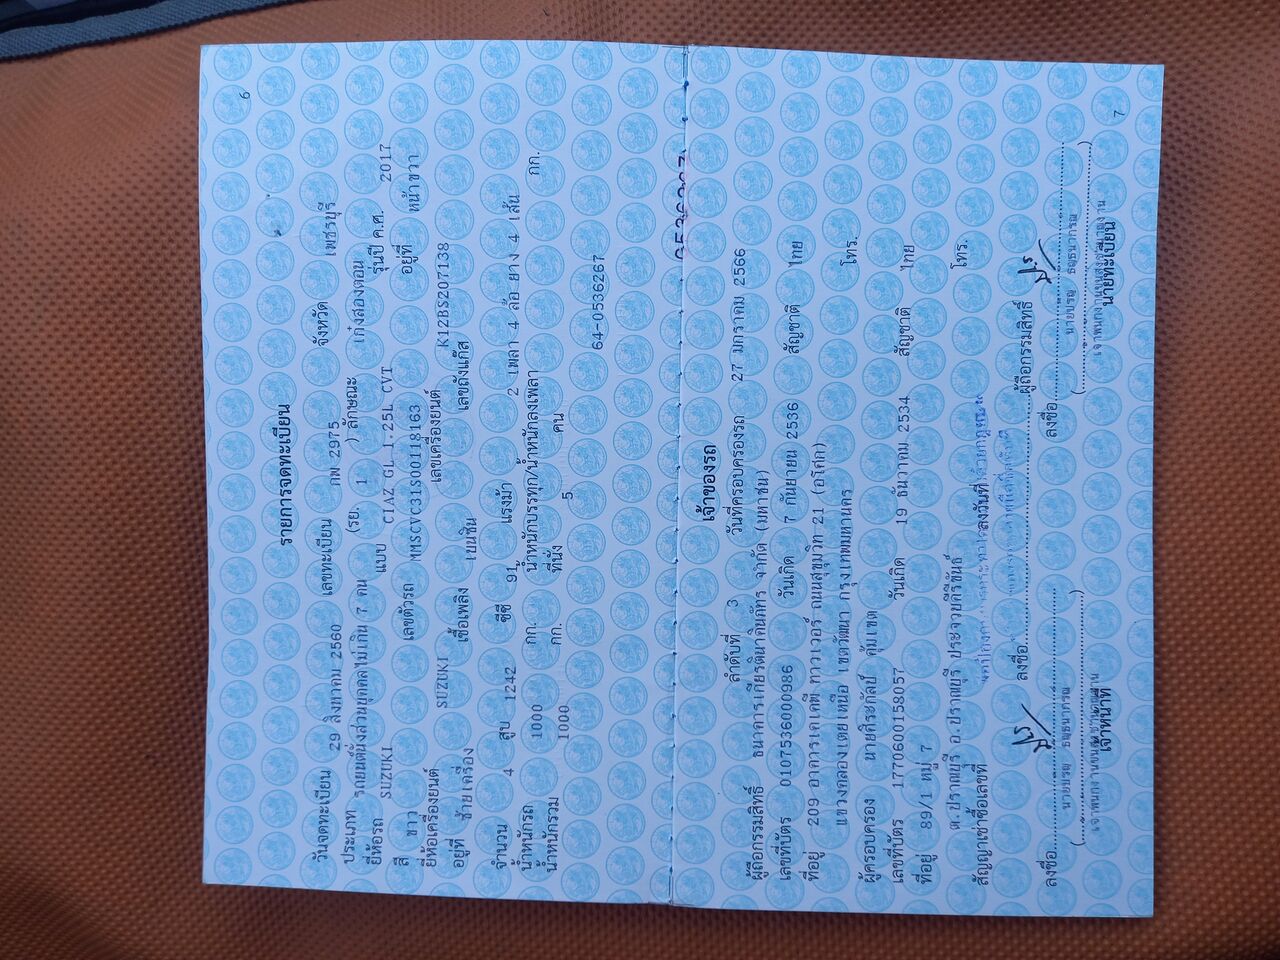 6
รายการจดทะเบียน
วันจดทะเบียน 29 สิงหาคม 2560 เลขทะเบียน กพ 2975 จังหวัด เพชรบุรี
ประเภท รถยนต์นั่งส่วนบุคคลไม่เกิน 7 คน (รย. 1 ) ลักษณะ เก๋งสองตอน
ยี่ห้อรถ SUZUKI แบบ CIAZ GL 1.25L CVT รุ่นปี ค.ศ. 2017
สี ขาว เลขตัวรถ MMSCVC31S00118163 อยู่ที่ หน้าขวา
ยี่ห้อเครื่องยนต์ SUZUKI เลขเครื่องยนต์ K12BS207138
อยู่ที่ ซ้ายเครื่อง เชื้อเพลิง เบนซิน เลขถังแก๊ส
จำนวน 4 สูบ 1242 ซีซี 91 แรงม้า 2 เพลา 4 ล้อ ยาง 4 เส้น
น้ำหนักรถ 1000 กก. น้ำหนักบรรทุก/น้ำหนักลงเพลา กก.
น้ำหนักรวม 1000 กก. ที่นั่ง 5 คน
64-0536267
เจ้าของรถ
ลำดับที่ 3 วันที่ครอบครองรถ 27 มกราคม 2566
ผู้ถือกรรมสิทธิ์ ธนาคารเกียรตินาคินภัทร จำกัด (มหาชน)
เลขที่บัตร 0107536000986 วันเกิด 7 กันยายน 2536 สัญชาติ ไทย
ที่อยู่ 209 อาคารเคเคพี ทาวเวอร์ ถนนสุขุมวิท 21 (อโศก)
แขวงคลองเตยเหนือ เขตวัฒนา กรุงเทพมหานคร โทร.
ผู้ครอบครอง นายศิระกัลป์ คุ้มเขต
เลขที่บัตร 1770600158057 วันเกิด 19 ธันวาคม 2534 สัญชาติ ไทย
ที่อยู่ 89/1 หมู่ 7
ต.ปราณบุรี อ.ปราณบุรี ประจวบคีรีขันธ์ โทร.
สัญญาเช่าซื้อเลขที่ ลงวันที่
ลงชื่อ ผู้ถือกรรมสิทธิ์
ลงชื่อ ลงชื่อ
เจ้าหน้าที่ นายทะเบียน
7